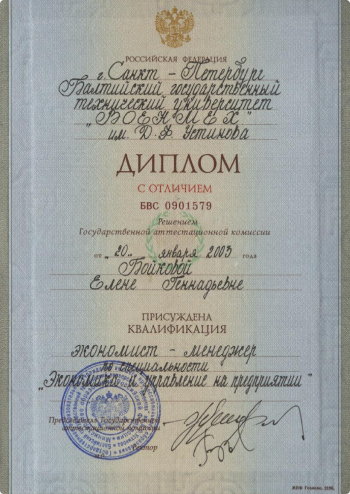 РОССИЙСКАЯ ФЕДЕРАЦИЯ
г. Санкт - Петербург
Балтийский государственный
технический университет
"ВОЕНМЕХ"
им. Д Ф Устинова
ДИПЛОМ
С ОТЛИЧИЕМ
БВС 0901579
Решением
Государственной аттестационной комиссии
от "20" января 2003 года
Бойковой
Елене Геннадьевне
ПРИСУЖДЕНА
КВАЛИФИКАЦИЯ
экономист - менеджер
по специальности
"Экономика и управление на предприятии"
Председатель Государственной
аттестационной комиссии
Ректор